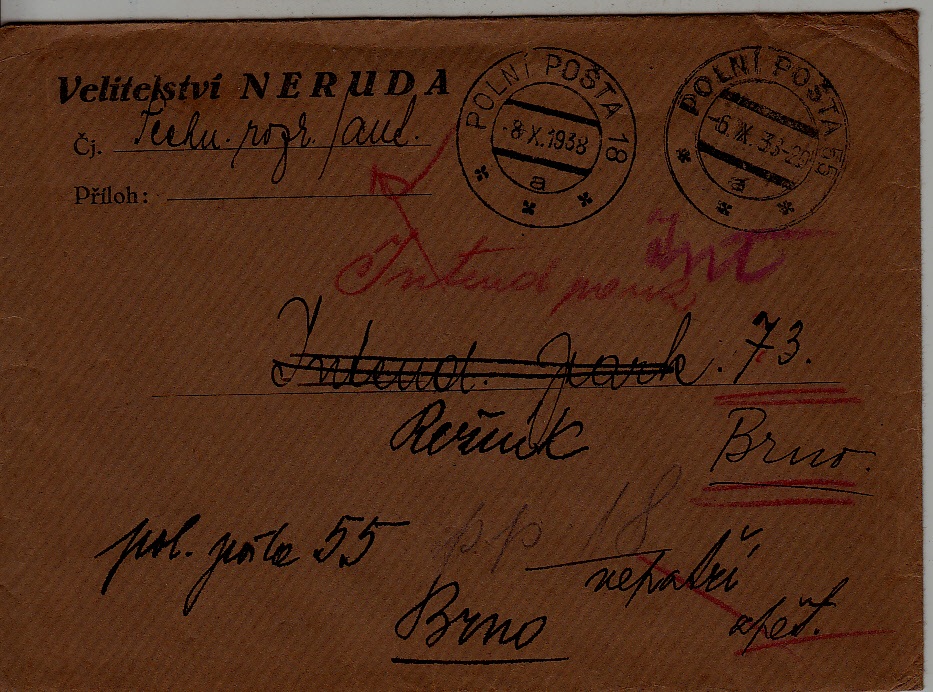 Velitelství NERUDA
Čj. Techn. rozr.
Příloh:
POLNÍ POŠTA 18
-8.X.1938
a
POLNÍ POŠTA 55
-6.IX.38-20
a
Int
Intend park
Intend. park. 73.
Řezník
Brno.
pol. pošta 55
p.p. 18
nepatří
zpět.
Brno